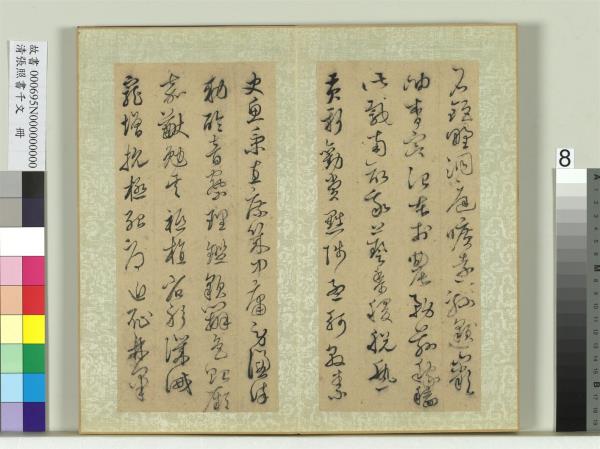 石鉅野洞庭曠遠緜邈巖
岫杳冥治本於農務茲稼穡
俶載南畝我藝黍稷稅熟
貢新勸賞黜陟孟軻敦素
史魚秉直庶幾中庸勞謙謹
勅聆音察理鑑貌辨色貽厥
嘉猷勉其祗植省躬譏誡
寵增抗極殆辱近恥林皋
故書 000695N000000000
清張照書千文 冊
8